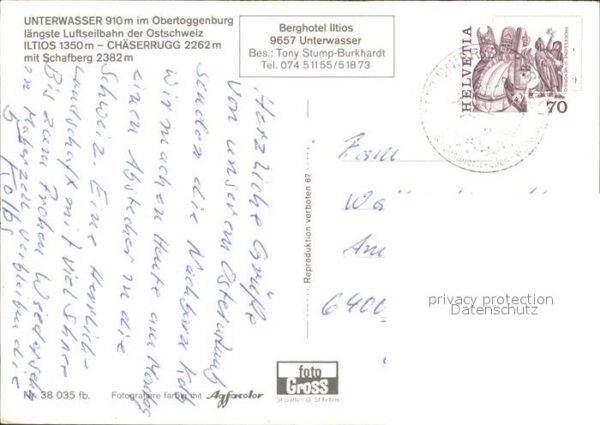 UNTERWASSER 910 m im Obertoggenburg
längste Luftseilbahn der Ostschweiz
ILTIOS 1350 m – CHÄSERRUGG 2262 m
mit Schafberg 2382 m
Berghotel Iltios
9657 Unterwasser
Bes.: Tony Stump-Burkhardt
Tel. 074 51155/51873
HELVETIA
PROCESSIONE MENDRISIO
70
Herzliche Grüße
von unserem Osterurlaub
senden die Nachbarn Kolb
wir machen Heute am Montag
einen Abstecher in die
Schweiz. Eine Herrliche
Landschaft mit viel Schnee
Bis zum Frohen Wiedersehn
in Maberzell verbleiben die
5 Kolbs
Fam
Am
6400
Reproduktion verboten 87
privacy protection
Datenschutz
foto
Gross
St.Gallen O St.Fiden
Nr. 38 035 fb. Fotografiere farbig mit Agfacolor